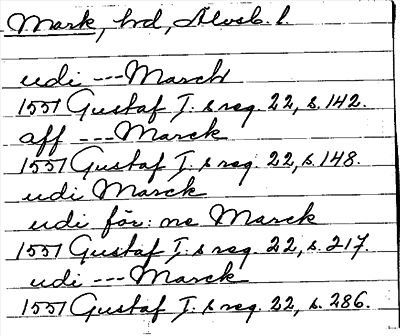 Mark, hd, Älvsb. l.
udi --- March
1551 Gustaf I:s reg. 22, s. 142.
aff --- Marck
1551 Gustaf I:s reg. 22, s. 148.
udi Marck
udi för: ne Marck
1551 Gustaf I:s reg. 22, s. 217.
udi --- Marck
1551 Gustaf I:s reg. 22, s. 286.